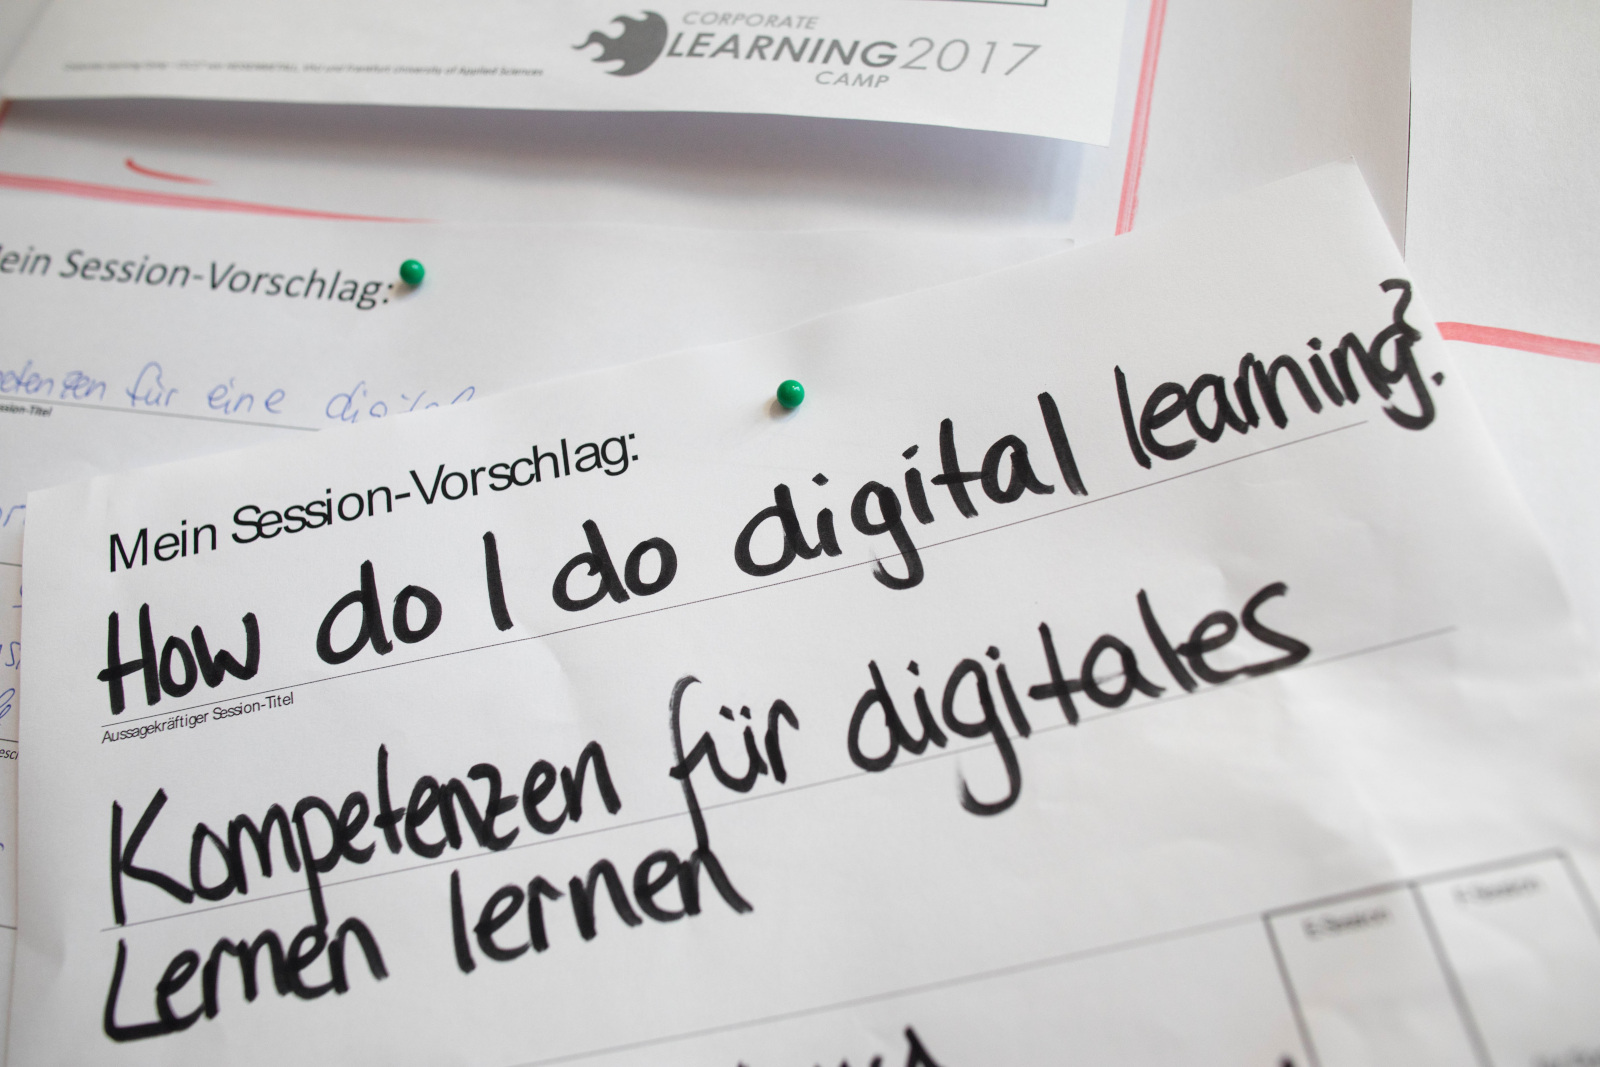 CORPORATE
LEARNING 2017
CAMP
ein Session-Vorschlag:
für eine digital
Mein Session-Vorschlag:
How do I do digital learning?
Aussagekräftiger Session-Titel
Kompetenzen für digitales
Lernen lernen